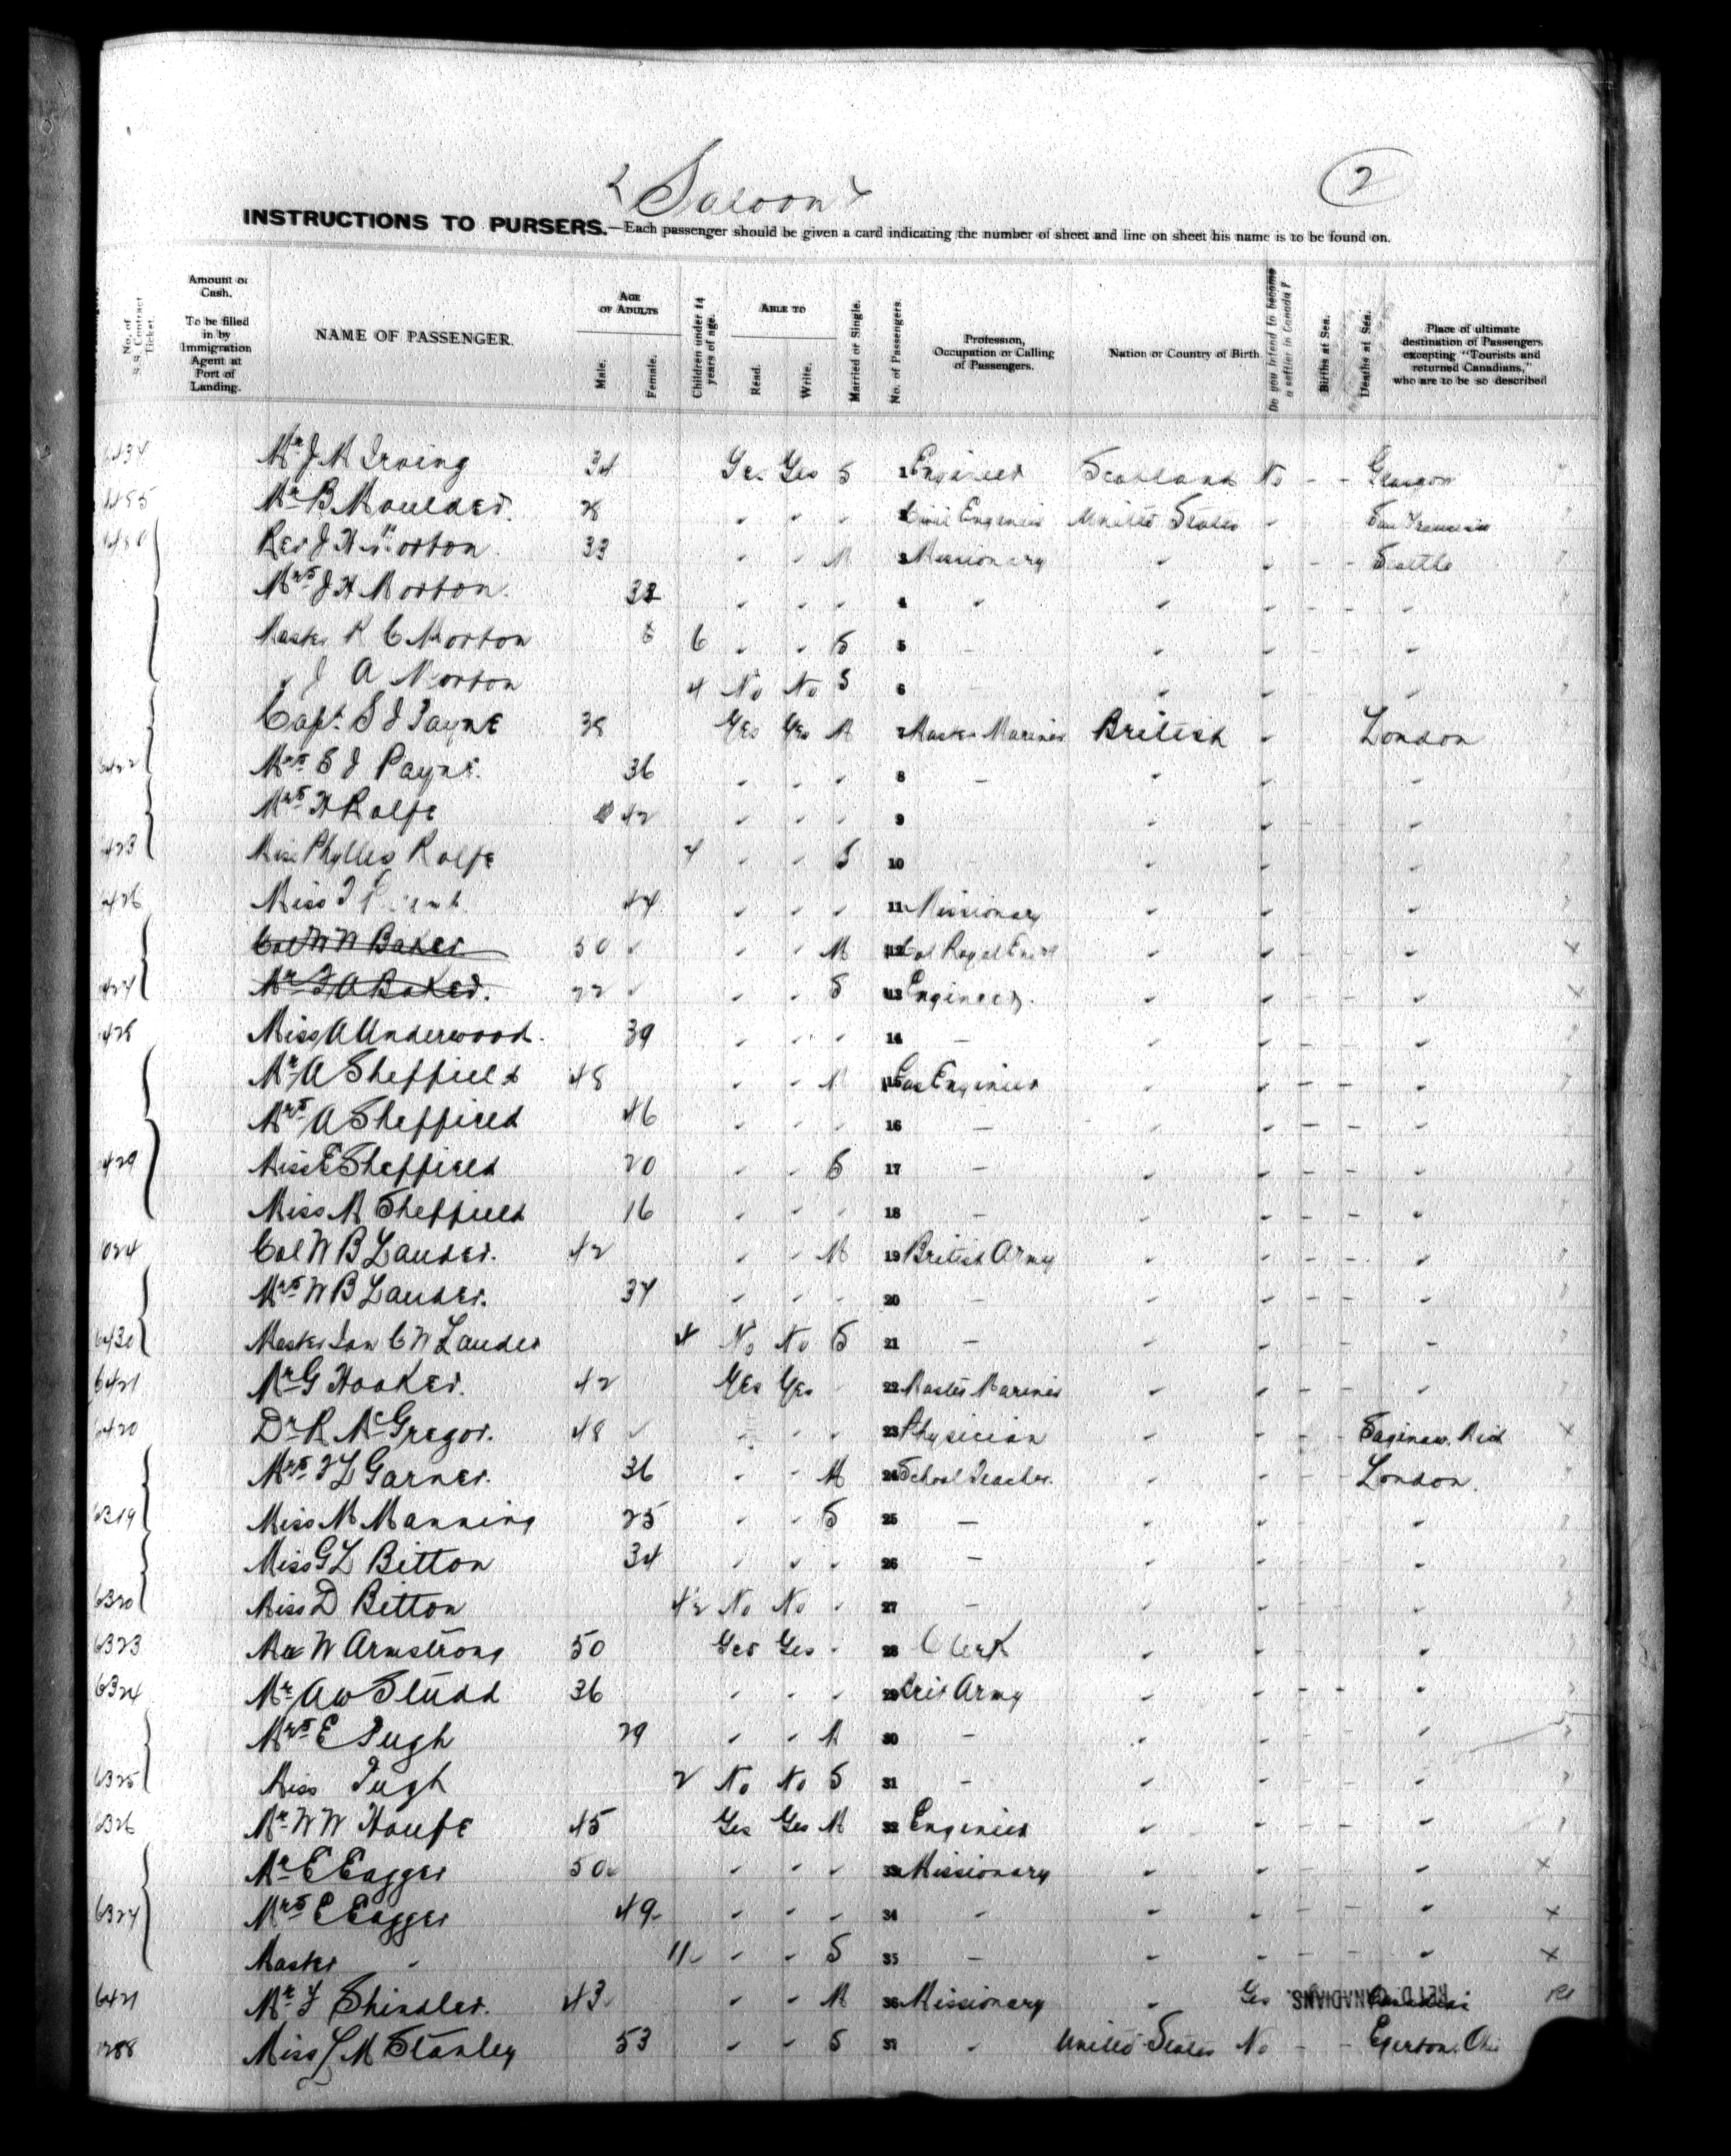 Saloon
2
INSTRUCTIONS TO PURSERS.—Each passenger should be given a card indicating the number of sheet and line on sheet his name is to be found on.
No. of S.S. Contract Ticket. Amount of Cash. To be filled in by Immigration Agent at Port of Landing. NAME OF PASSENGER. AGE OF ADULTS Male. Female. Children under 14 years of age. ABLE TO Read. Write. Married or Single. No. of Passengers. Profession, Occupation or Calling of Passengers. Nation or Country of Birth. Do you intend to become a settler in Canada? Births at Sea. Deaths at Sea. Place of ultimate destination of Passengers excepting "Tourists and returned Canadians," who are to be so described
Mr J M Irving 34 Yes Yes S 1 Engineer Scotland No - - Glasgow
Mr B Moulder. 28 " " " 2 Civil Engineer United States " San Francisco
Rev J H Morton 33 " " M 3 Missionary " " - - Seattle
Mrs J H Morton. 32 " " " 4 " " " - - "
Master R C Morton 6 " " S 5 - " " - - "
" J A Morton 4 No No S 6 - " " - - "
Capt. S J Payne 38 Yes Yes M 7 Master Mariner British " London
Mrs S J Payne. 36 " " " 8 - " " "
Mrs H Rolfe 42 " " " 9 " " "
Miss Phyllis Rolfe " " S 10 " " "
426 Miss 44 " " " 11 Missionary " " "
Col W W Baker 50 " " M 12 Col Royal Engrs " " " x
Mr F A Baker. 22 " " S 13 Engineer. " " " x
428 Miss A Underwood. 39 " " " 14 - " " "
Mr A Sheffield 48 " " M 15 Gas Engineer " " - - "
Mrs A Sheffield 46 " " " 16 - " " - - "
429 Miss E Sheffield 20 " " S 17 - " " - - "
Miss M Sheffield 16 " " " 18 - " " - - "
Col W B Lauder. 42 " " M 19 British Army " " - - "
Mrs W B Lauder. 37 " " " 20 - " " - - "
6430 Master Ian C W Lauder 4 No No S 21 - " " - - "
6421 Mr G Hooker. 42 Yes Yes " 22 Master Mariner " " - - "
6420 Dr R McGregor. 48 " " " 23 Physician " " - - Saginaw. Mich x
Mrs F L Garner. 36 " " M 24 School Teacher. " " - - London.
6319 Miss M Manning 25 " " S 25 - " " - - "
Miss G L Bitton 34 " " " 26 - " " - - "
6320 Miss D Bitton 4½ No No " 27 - " " - - "
6323 Mr W Armstrong 50 Yes Yes " 28 Clerk " " - - "
6324 Mr A W Studd 36 " " " 29 Army " " - - "
Mrs E Pugh 29 " " M 30 - " " - - "
6325 Miss Pugh 2 No No S 31 - " " - - "
6326 Mr W W Houfe 45 Yes Yes M 32 Engineer " " - - "
Mr E Eagger 50 " " " 33 Missionary " " - - " x
Mrs E Eagger 49 " " " 34 - " " - - " x
Master " 11 " " S 35 - " " - - " x
Mr F Shindler. 43 " " M 36 Missionary " Yes RET'D. CANADIANS.
Miss L M Stanley 53 " " S 37 " United States No - - Egerton. Ohio